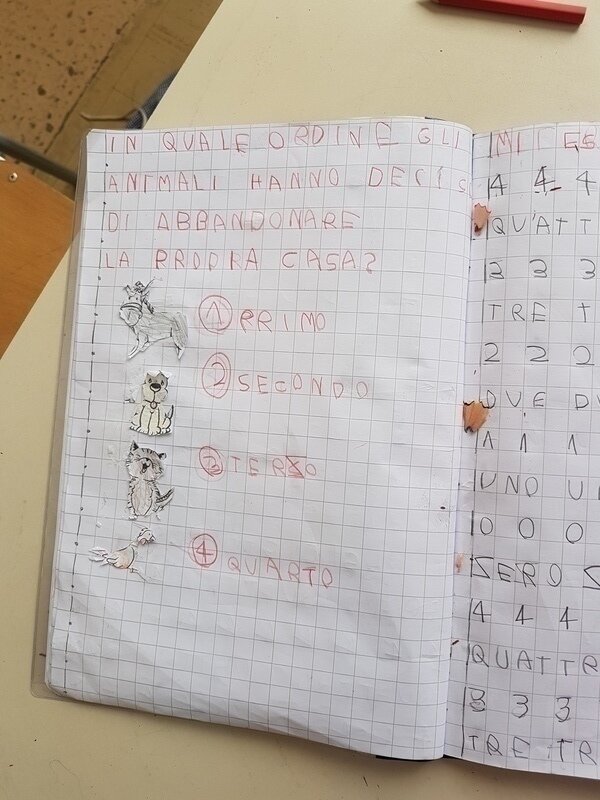 IN QUALE ORDINE GLI
ANIMALI HANNO DECIS
DI ABBANDONARE
LA PROPRIA CASA?
1 PRIMO
2 SECONDO
3 TERZO
4 QUARTO
MI ESE
4 4 4
QUATT
3 3 3
TRE T
2 2 2
DUE DU
1 1 1
UNO U
0 0 0
ZERO Z
4 4 4
QUATTR
3 3 3
TRE TR